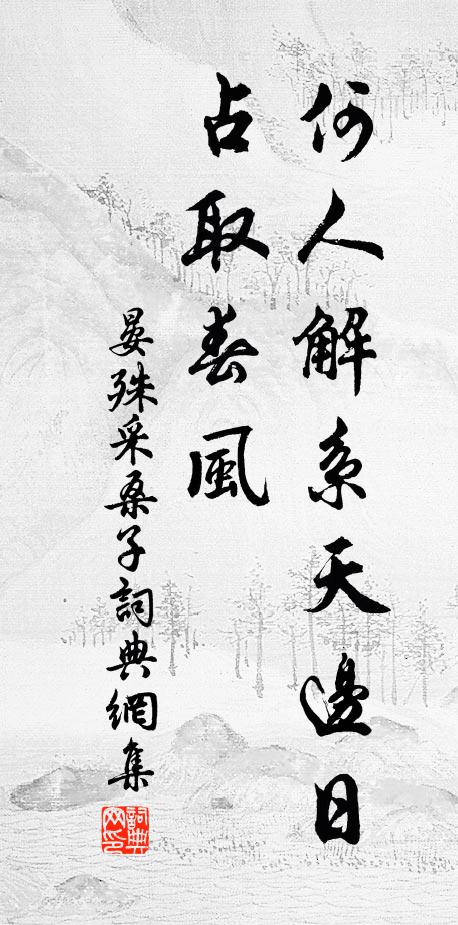 何人解系天邊日
占取春風
晏殊采桑子詞典網集
詞典网印